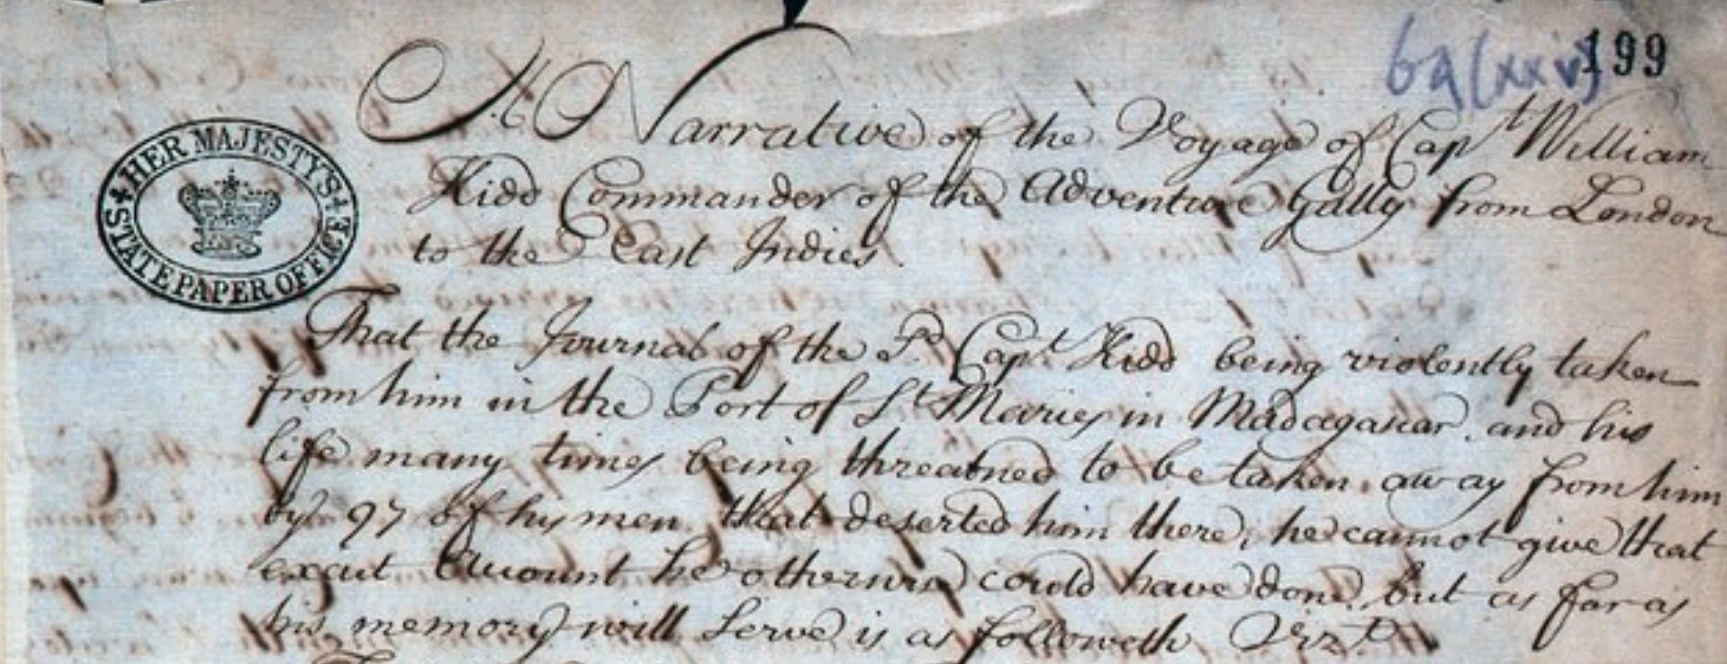 69(xxv) 199
HER MAJESTY'S
STATE PAPER OFFICE
A Narrative of the Voyage of Capt William
Kidd Commander of the Adventure Gally from London
to the East Indies.
That the Journal of the sd. Capt. Kidd being violently taken
from him in the Port of St Maries in Madagascar, and his
life many times being threatned to be taken away from him
by 97 of his men that deserted him there, he cannot give that
exact Account he otherwise could have done, but as far as
his memory will serve is as followeth Vizt.